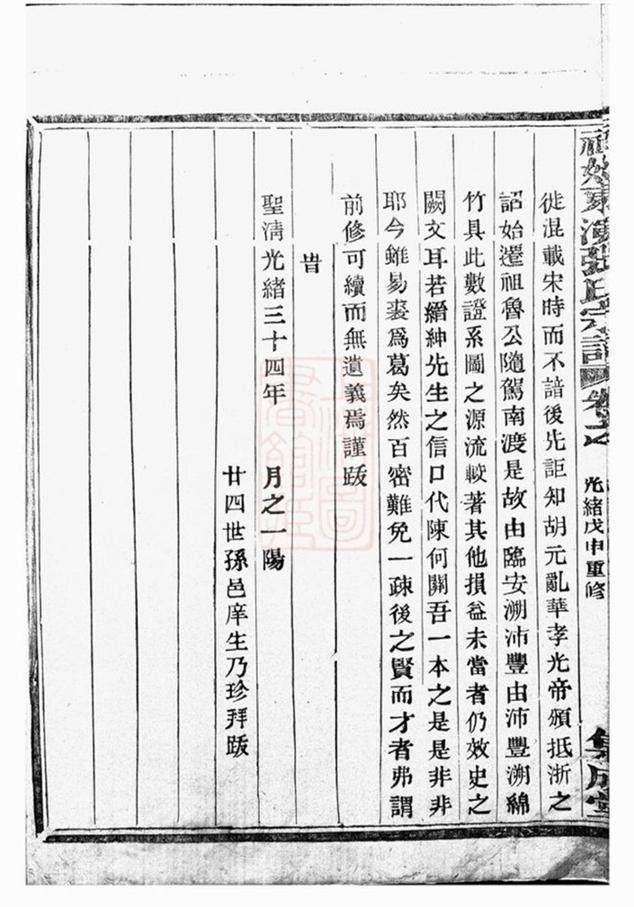 東漢張氏宗譜
卷之
光緒戊申重修
集成堂
徙混載宋時而不諳後先詎知胡元亂華孝光帝頒抵浙之
詔始遷祖魯公隨駕南渡是故由臨安溯沛豐由沛豐溯綿
竹具此數證系圖之源流較著其他損益未當者仍效史之
闕文耳若縉紳先生之信口代陳何關吾一本之是是非非
耶今雖易裘爲葛矣然百密難免一疎後之賢而才者弗謂
前修可續而無遺義焉謹跋
旹
聖清光緒三十四年 月之一陽
廿四世孫邑庠生乃珍拜跋